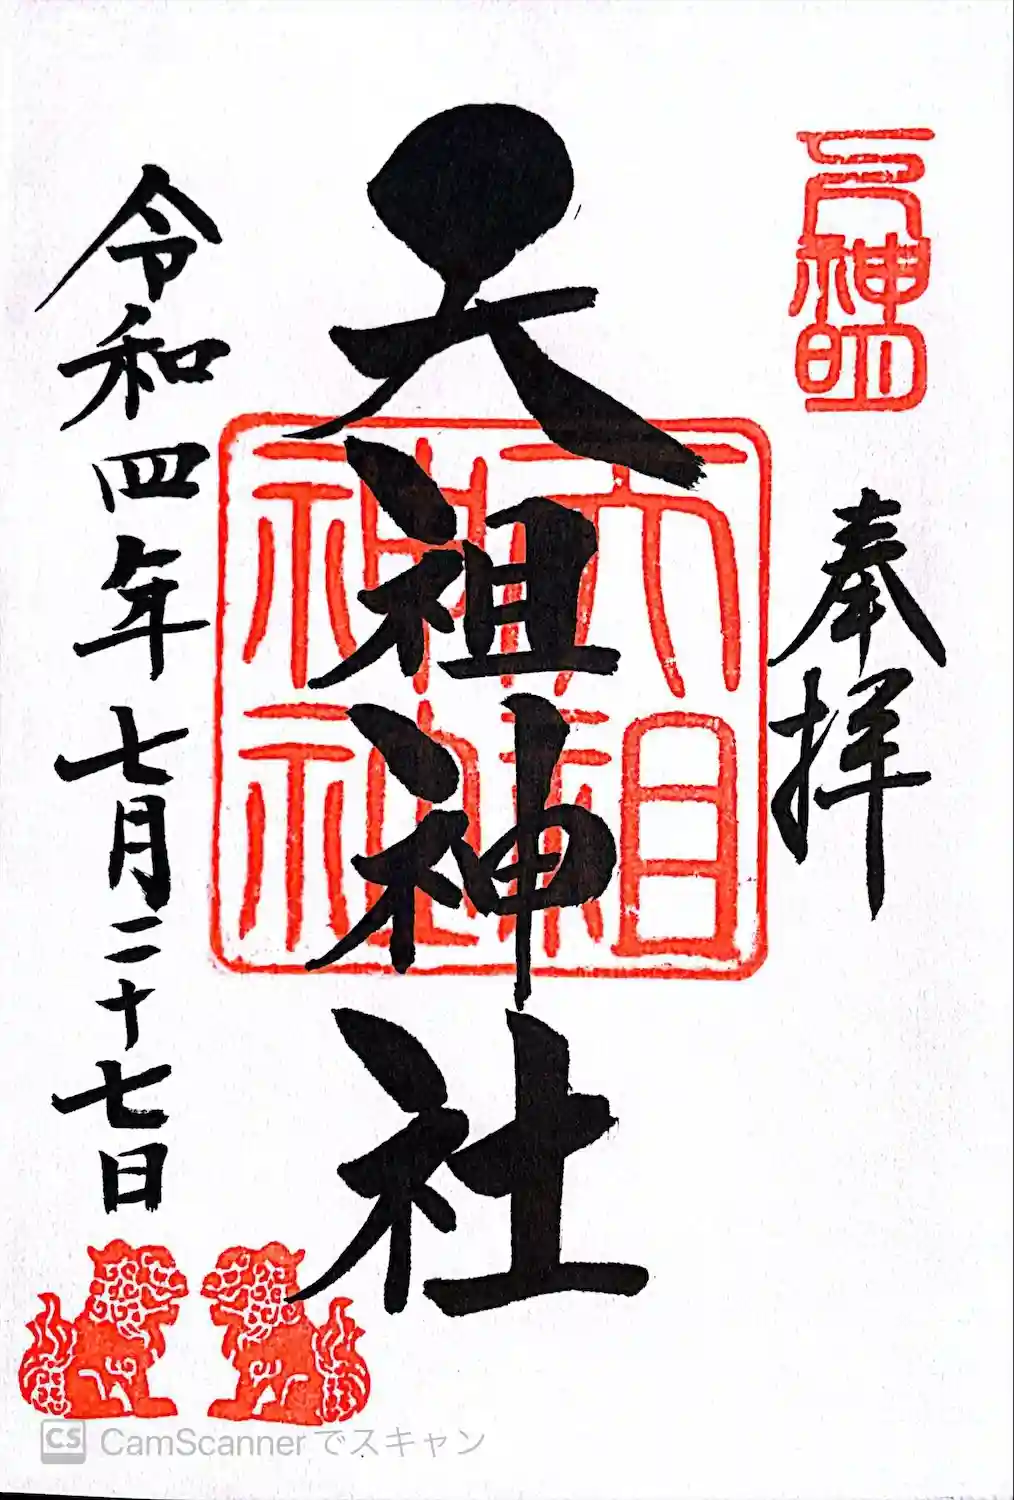 神明
奉拝
天祖神社
天祖
神社
令和四年七月二十七日
CS CamScannerでスキャン